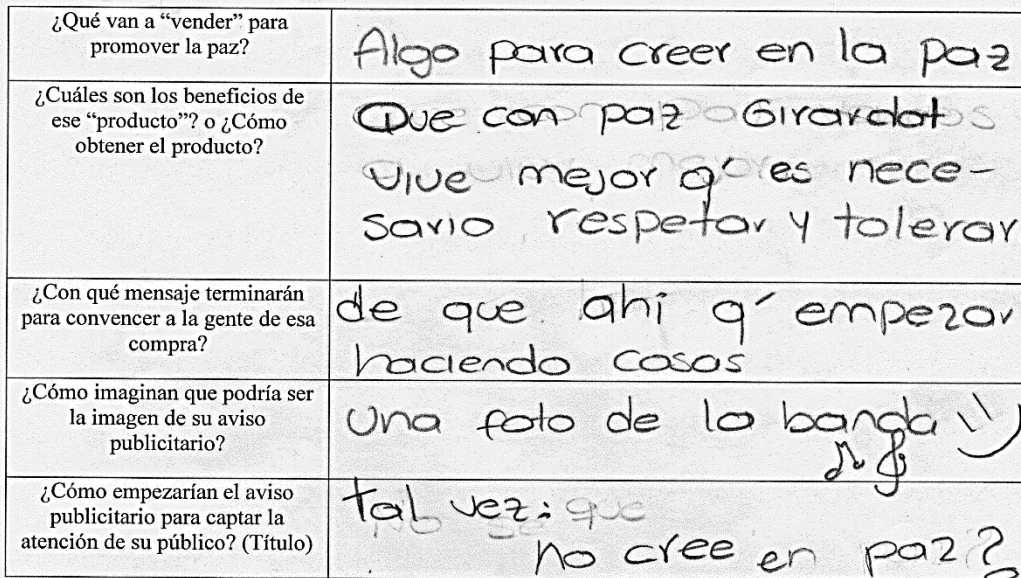 ¿Qué van a “vender” para
promover la paz?
Algo para creer en la paz
¿Cuáles son los beneficios de
ese “producto”? o ¿Cómo
obtener el producto?
Que con paz Girardot
vive mejor q' es nece-
sario respetar y tolerar
¿Con qué mensaje terminarán
para convencer a la gente de esa
compra?
de que ahi q' empezar
haciendo cosas
¿Cómo imaginan que podría ser
la imagen de su aviso
publicitario?
Una foto de la banda
¿Cómo empezarían el aviso
publicitario para captar la
atención de su público? (Título)
tal vez: que
no cree en paz?